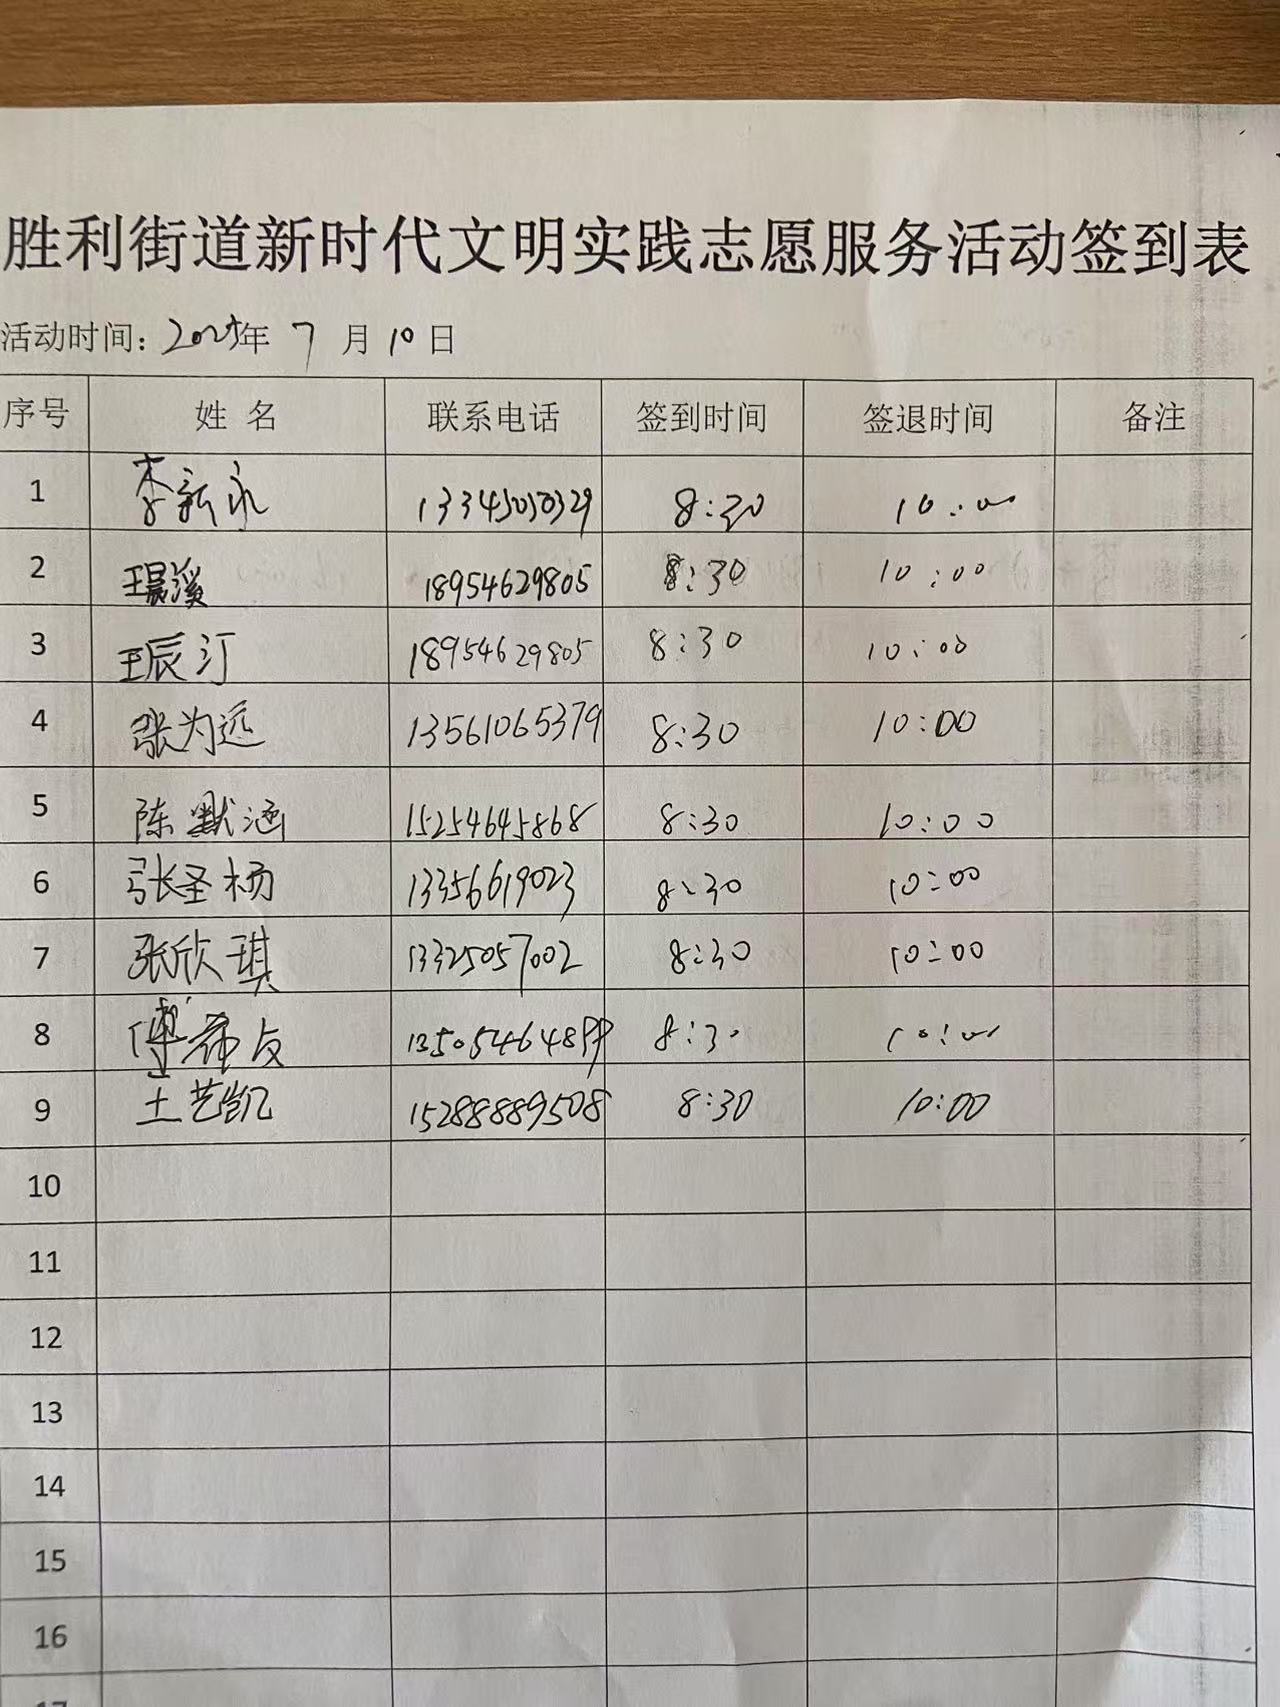 胜利街道新时代文明实践志愿服务活动签到表
活动时间：2025年 7 月 10 日
序号 姓 名 联系电话 签到时间 签退时间 备注
1 李新永 13345050329 8:30 10:00
2 王晨溪 18954629805 8:30 10:00
3 王辰汀 18954629805 8:30 10:00
4 张为远 13561065379 8:30 10:00
5 陈默涵 15254645868 8:30 10:00
6 张圣杨 13356619023 8:30 10:00
7 张欣琪 13325057002 8:30 10:00
8 傅希友 8:30 10:00
9 王艺凯 15288889508 8:30 10:00
10
11
12
13
14
15
16